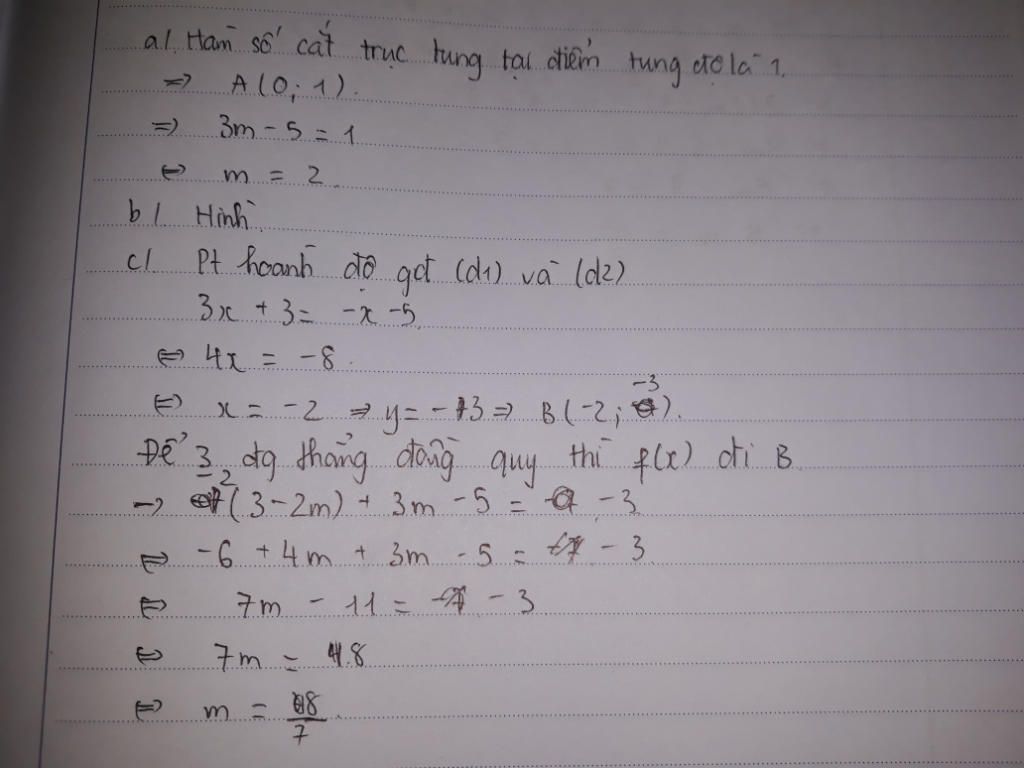 a/. Hàm số cắt trục tung tại điểm tung độ là 1.
=> A(0; 1).
=> 3m - 5 = 1
<=> m = 2.
b/. Hình
c/. Pt hoành độ gđ (d1) và (d2)
3x + 3 = -x - 5
<=> 4x = -8.
<=> x = -2 => y = -3 => B(-2; -3).
Để 3 đg thẳng đồng quy thì f(x) đi B
-> -2(3 - 2m) + 3m - 5 = -3
<=> -6 + 4m + 3m - 5 = -3
<=> 7m - 11 = -3
<=> 7m = 8
<=> m = 8/7.